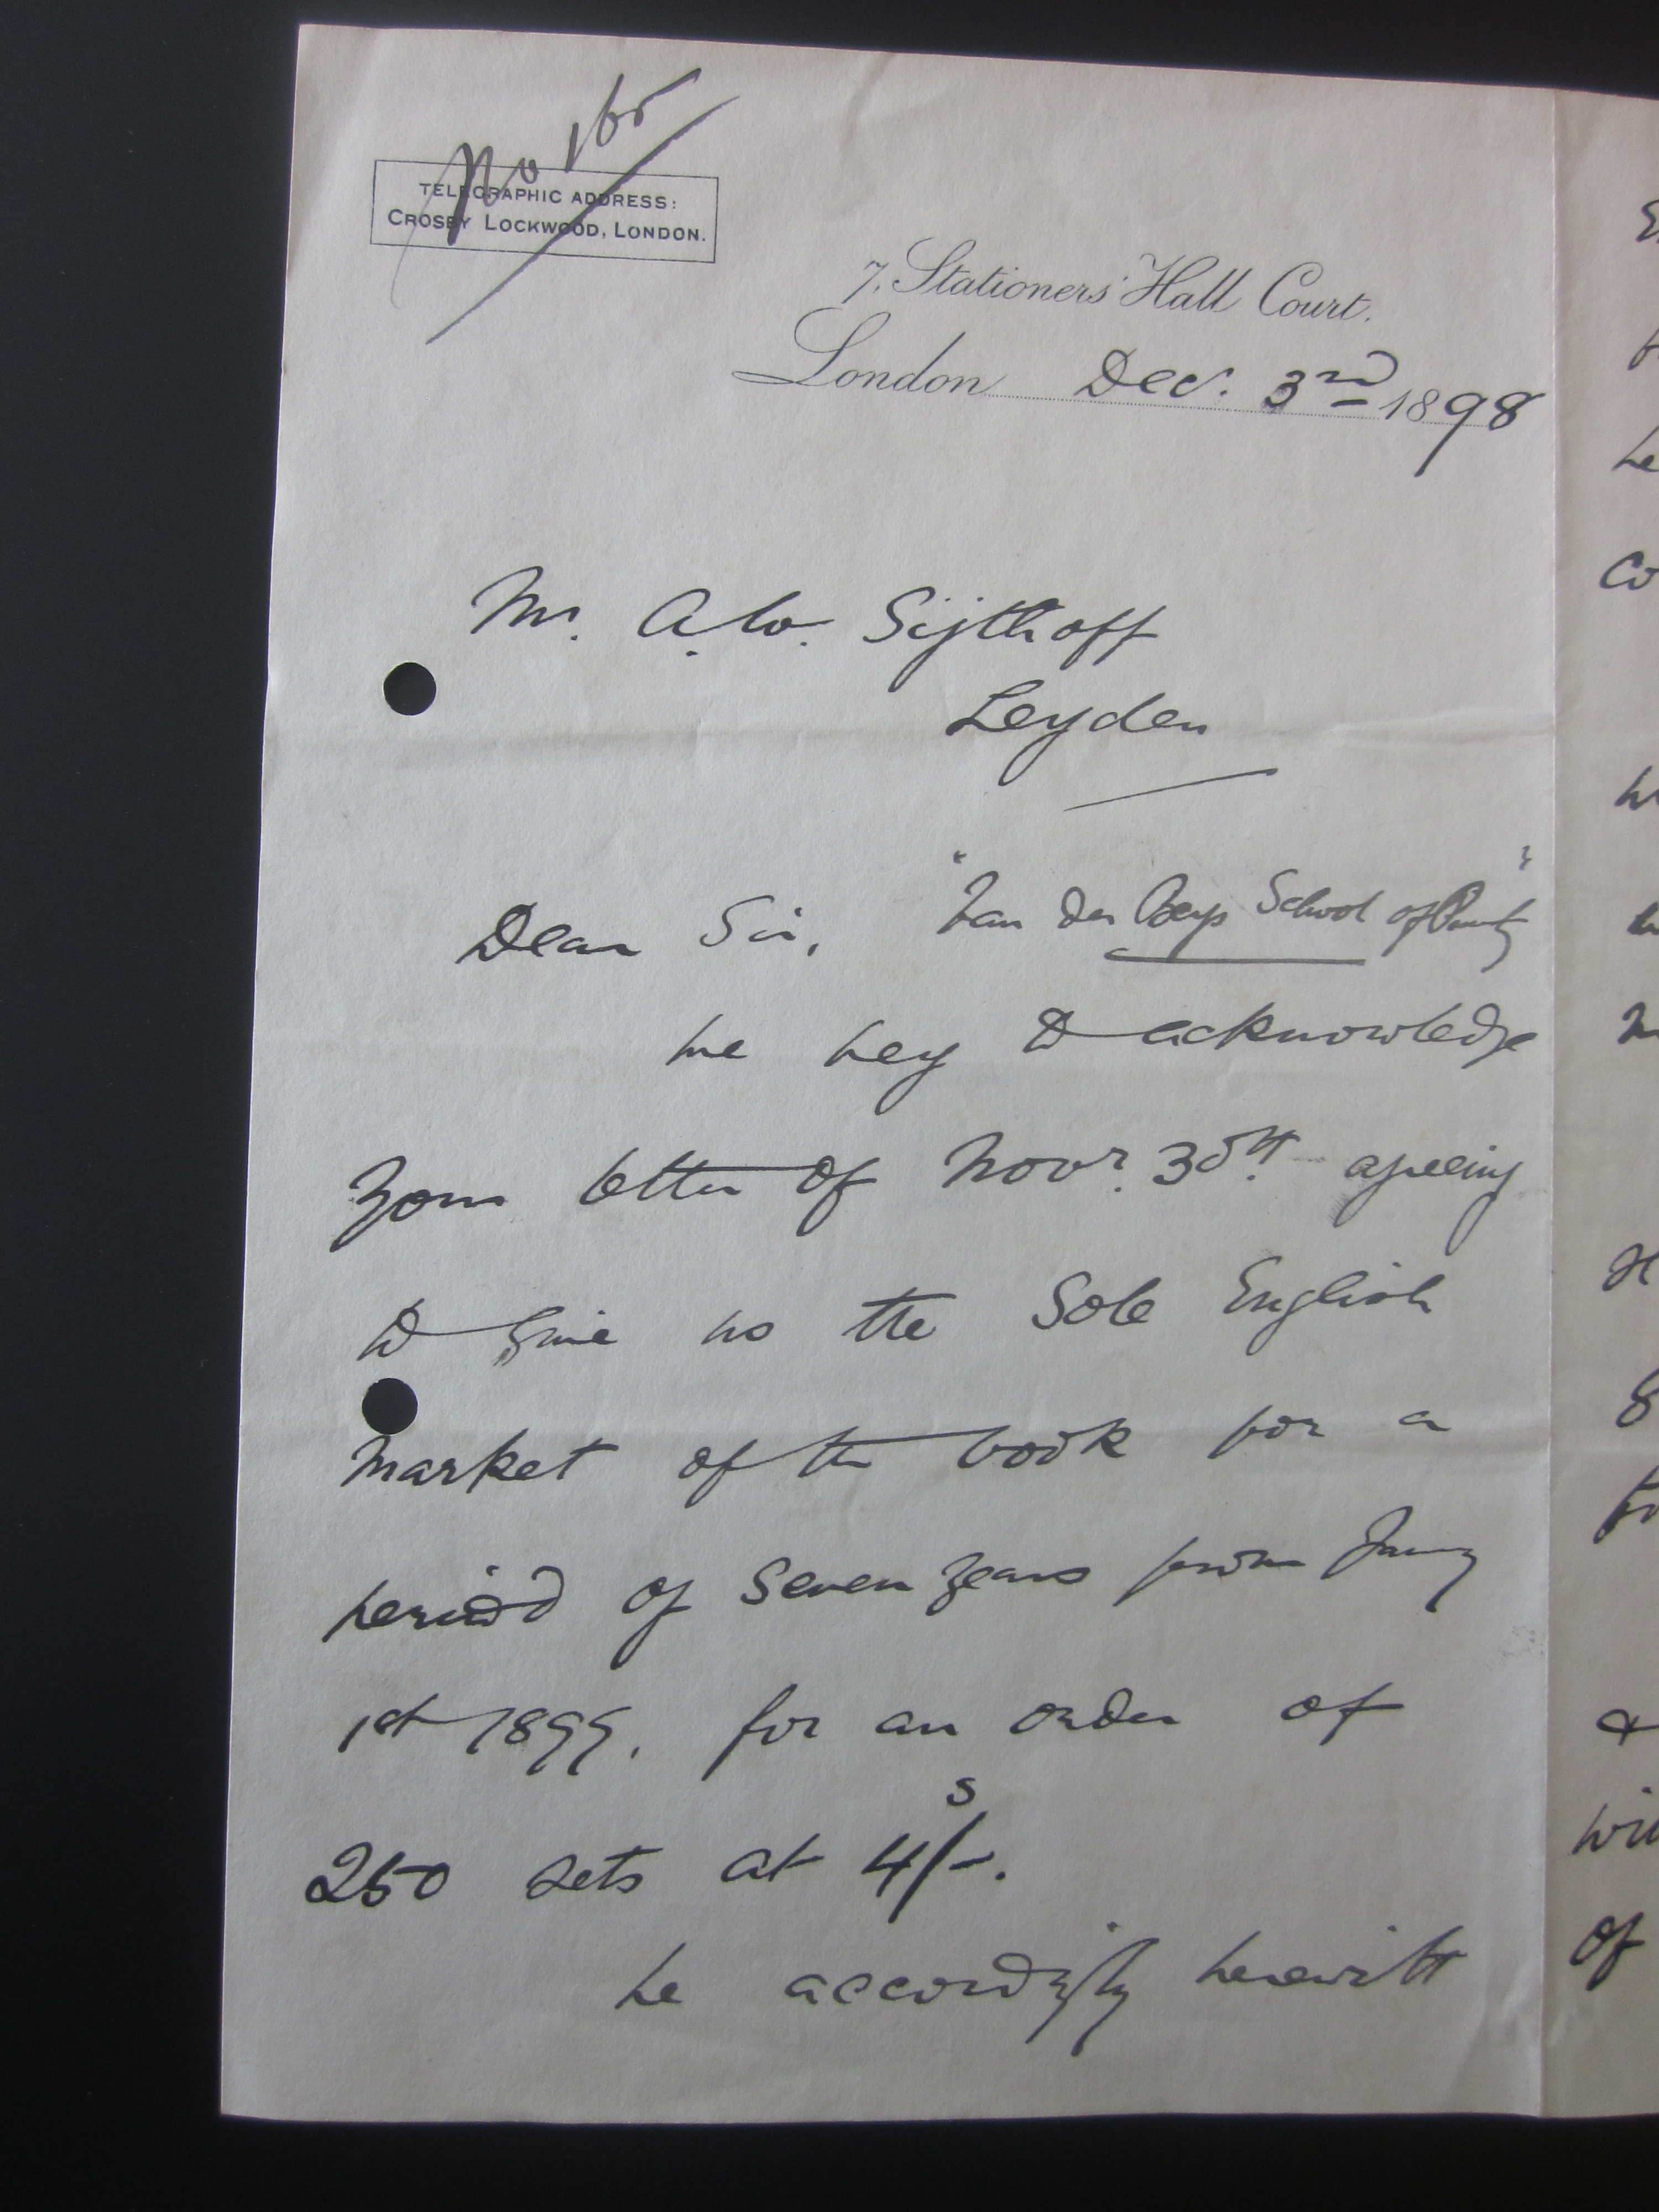 No 165
TELEGRAPHIC ADDRESS:
CROSBY LOCKWOOD, LONDON.
7, Stationers' Hall Court.
London Dec. 3rd 1898
Mr. A. W. Sijthoff
Leyden
Dear Sir, "Van der Burg's School of Paintg"
We beg to acknowledge
your letter of Novr. 30th. agreeing
to give us the Sole English
market of the book for a
period of seven years from Jany
1st 1899. for an order of
250 sets at 4s/-.
We accordingly herewith